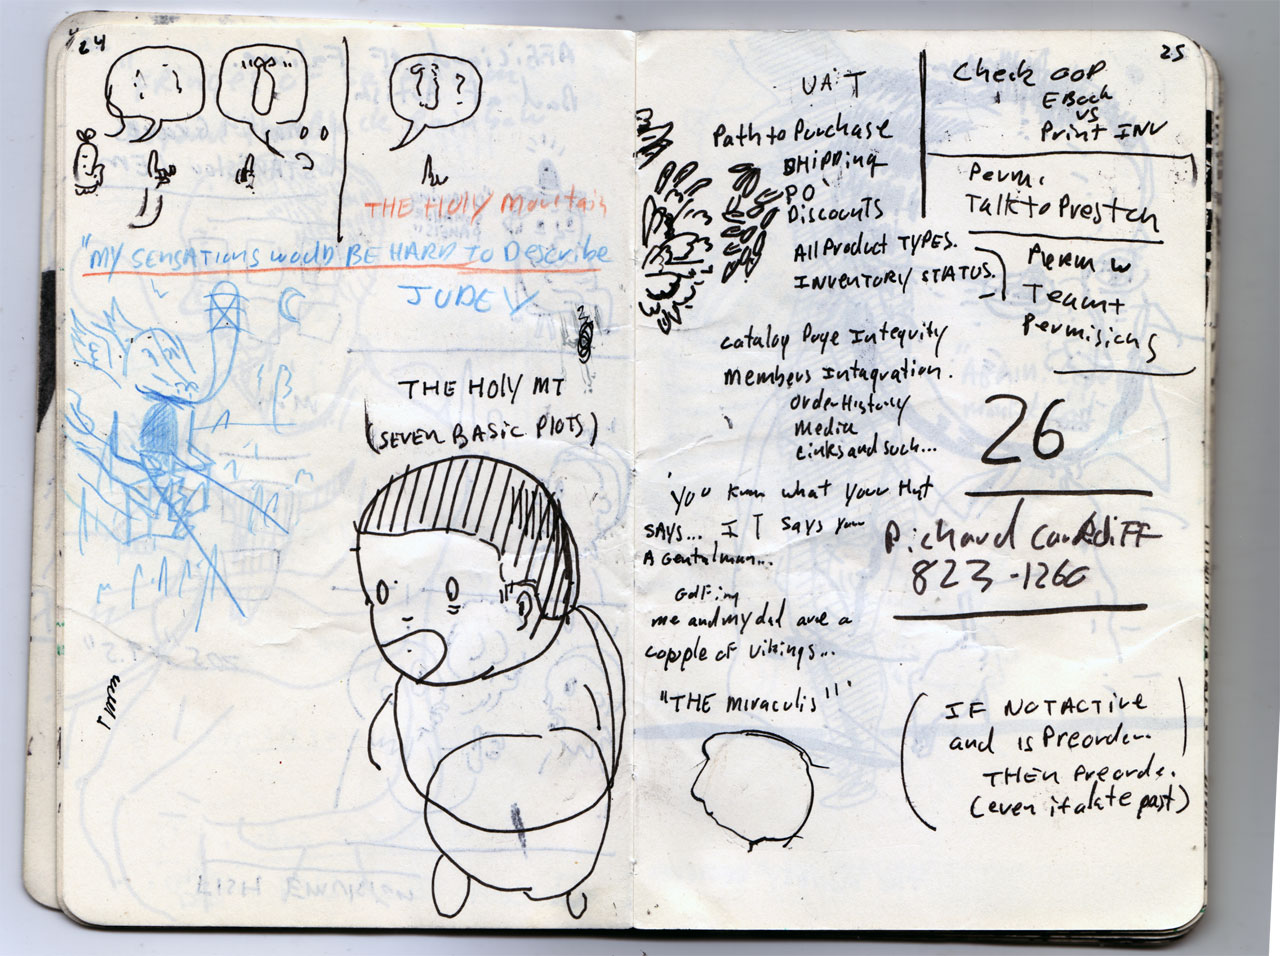 24
THE HOLY MOUNTAIN
"MY SENSATIONS WOULD BE HARD TO DESCRIBE
JUDE
THE HOLY MT
(SEVEN BASIC PLOTS)
25
UAT
Path to Purchase
SHIPPING
PO
Discounts
All Product TYPES.
INVENTORY STATUS.
catalog Page Integrity
Members Intagration.
Order History
Media
Links and such...
"You know what your Hat
SAYS... IT says you
A Gentalman...
Golfing
me and my dad are a
copple of vikings...
"THE miraculis"
Check OOP
EBook
vs
Print INV
Perm.
Talk to Preston
Perm w
Team +
Permisions
26
Richard Cardiff
823-1260
(IF NOT ACTIVE
and is Preorder.
THEN Preorde.
(even if a late past)